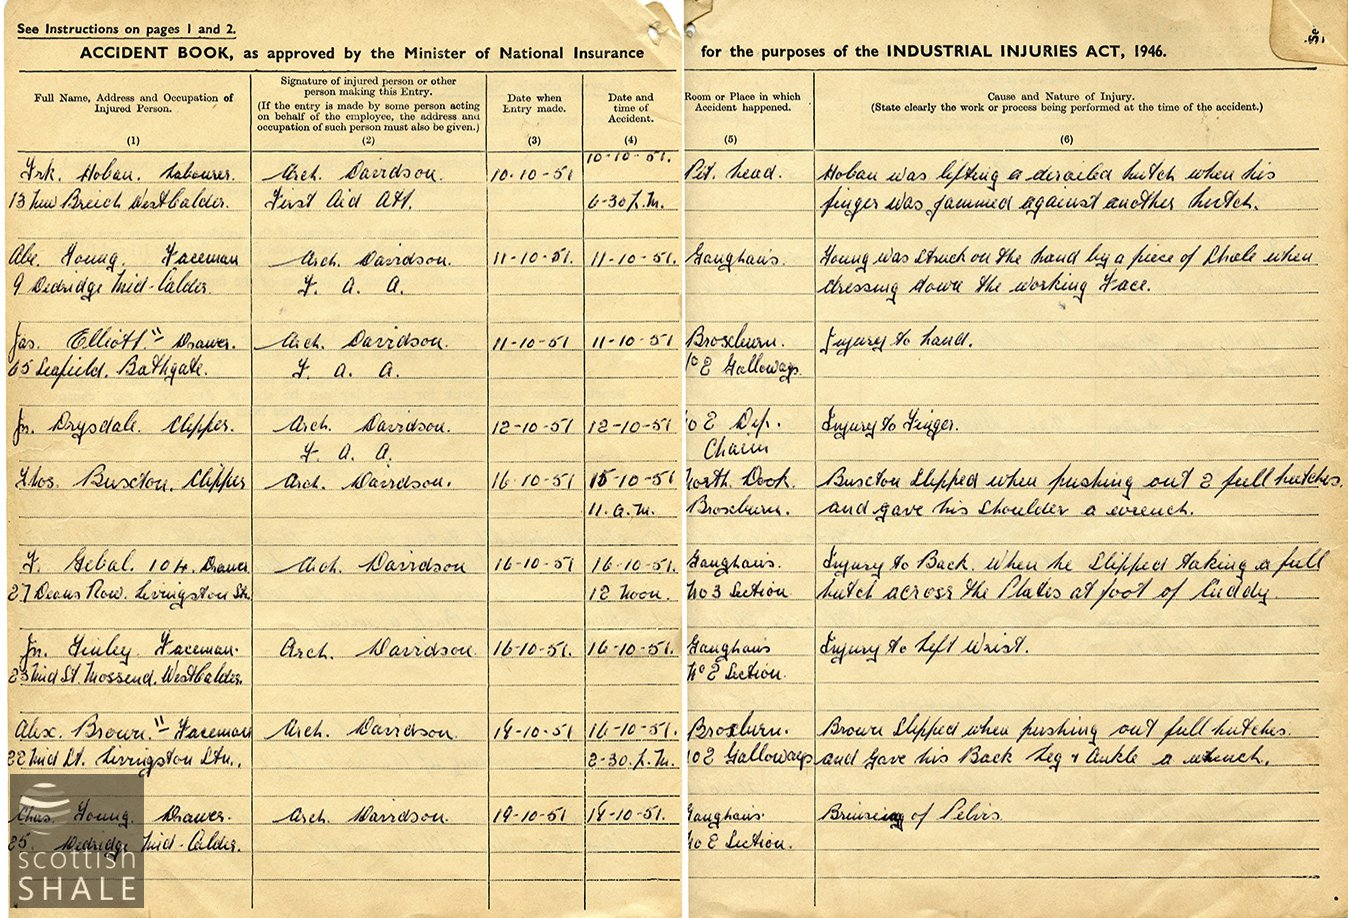 See Instructions on pages 1 and 2.
ACCIDENT BOOK, as approved by the Minister of National Insurance for the purposes of the INDUSTRIAL INJURIES ACT, 1946.
Full Name, Address and Occupation of
Injured Person.
(1)
Signature of injured person or other
person making this Entry.
(If the entry is made by some person acting
on behalf of the employee, the address and
occupation of such person must also be given.)
(2)
Date when
Entry made.
(3)
Date and
time of
Accident.
(4)
Room or Place in which
Accident happened.
(5)
Cause and Nature of Injury.
(State clearly the work or process being performed at the time of the accident.)
(6)
10-10-51.
Frk. Hoban. Labourer. Arch. Davidson. 10-10-51 Pit head. Hoban was lifting a derailed hutch when his
13 New Breich West Calder. First Aid Att. 6-30 P.M. finger was jammed against another hutch.
Abe. Young. Faceman Arch. Davidson. 11-10-51. 11-10-51. Young was struck on the hand by a piece of Shale when
9 Dedridge Mid-Calder. F. A. A. dressing down the working Face.
Jas. Elliott. Drawer. Arch. Davidson. 11-10-51 11-10-51 Broxburn. Injury to hand.
65 Seafield. Bathgate. F. A. A. E Galloways.
Jn. Drysdale. Clipper. Arch. Davidson. 12-10-51 12-10-51 Dip. Injury to Finger.
F. A. A.
Thos. Buxton. Clipper Arch. Davidson. 16-10-51 15-10-51 North Dook. Buxton Slipped when pushing out 2 full hutches.
11. A.M. Broxburn. and gave his shoulder a wrench.
F. Gebal. 104. Drawer Arch. Davidson 16-10-51 16-10-51. Injury to Back. when he Slipped taking a full
27 Deans Row. Livingston Stn. 12 Noon. No 3 Section hutch across the Plates at foot of Cuddy.
Jn. Finley Faceman. Arch. Davidson 16-10-51. 16-10-51. Injury to Left Wrist.
23 Mid St. Mossend. West Calder. No E Section.
Alex. Brown. Faceman Arch. Davidson. 19-10-51 16-10-51. Broxburn. Brown Slipped when pushing out full hutches.
22 Mid St. Livingston Stn. 2-30. P.M. Galloways and Gave his Back Leg & Ankle a wrench.
Chas. Young. Drawer. Arch. Davidson. 19-10-51 19-10-51. Bruising of Pelvis.
25. Dedridge Mid-Calder. No E Section.
scottish
SHALE